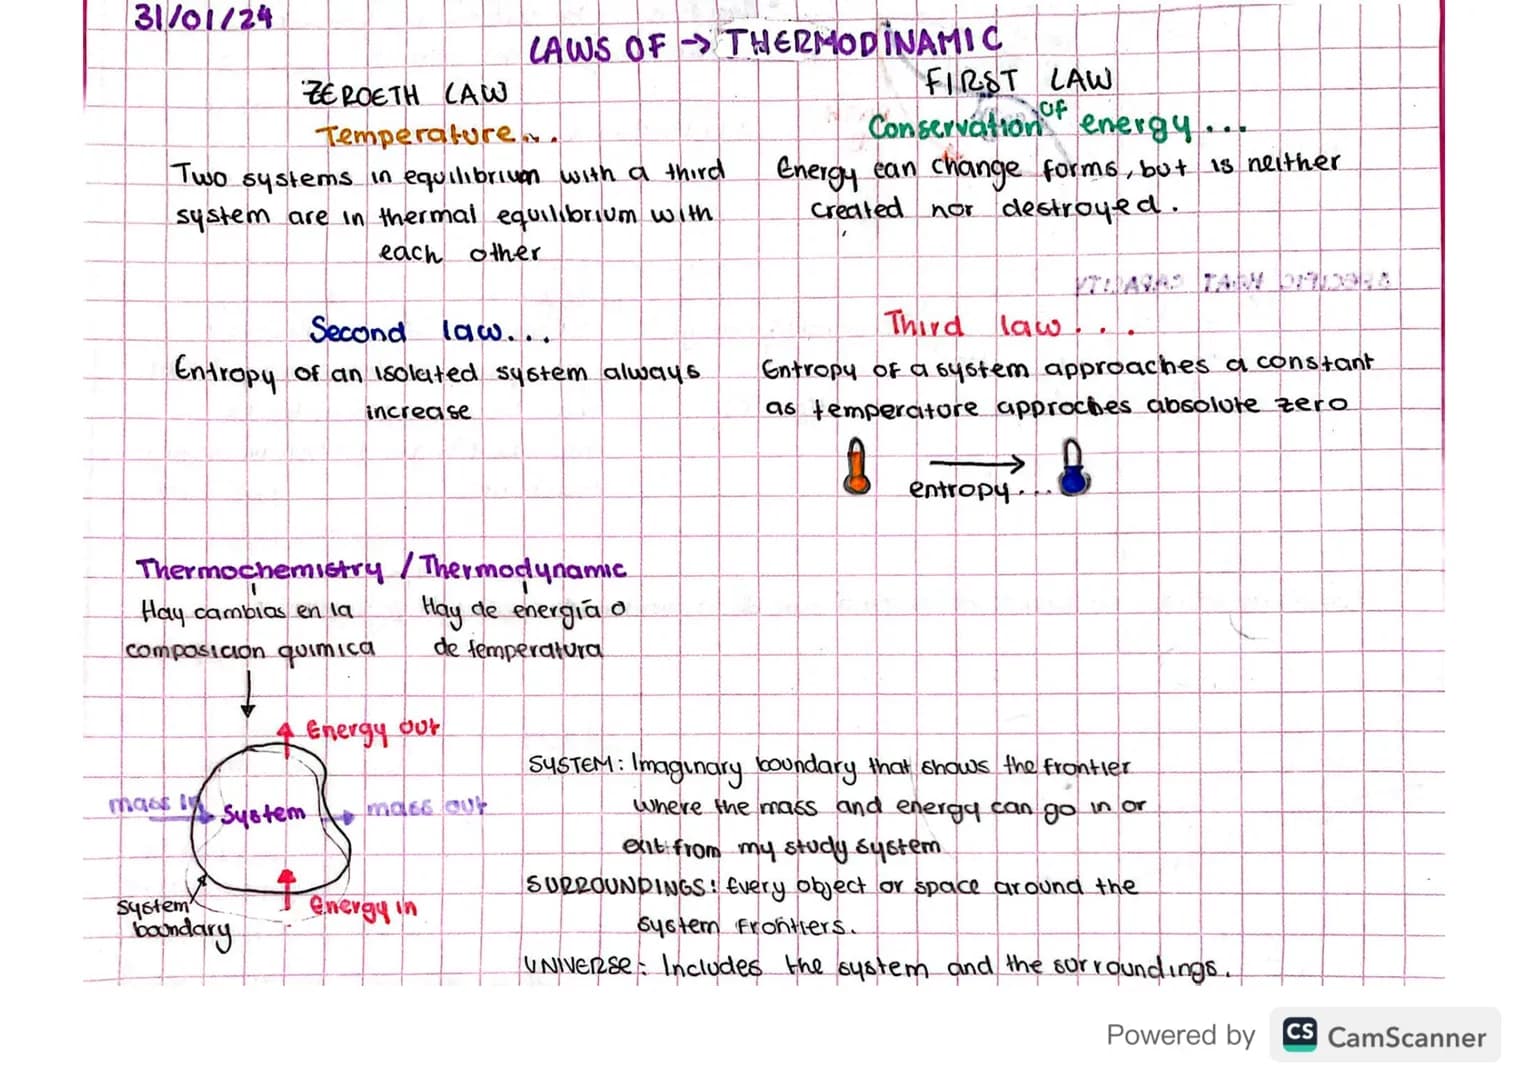 31/01/24
LAWS OF → THERMODINAMIC
ZEROETH LAW
Temperature...
Two systems in equilibrium with a third
system are in thermal equilibrium with
each other
FIRST LAW
Conservation of energy...
Energy can change forms, but is neither
created nor destroyed.
Second law...
Entropy of an isolated system always
increase
Third law...
Entropy of a system approaches a constant
as temperature approches absolute zero
entropy...
Thermochemistry / Thermodynamic
Hay cambios en la
composicion quimica
Hay de energía o
de temperatura
Energy out
mass in
System
mass out
system
boundary
Energy in
SYSTEM: Imaginary boundary that shows the frontier
where the mass and energy can go in or
exit from my study system
SURROUNDINGS: Every object or space around the
system frontiers.
UNIVERSE: Includes the system and the surroundings.
Powered by CS CamScanner